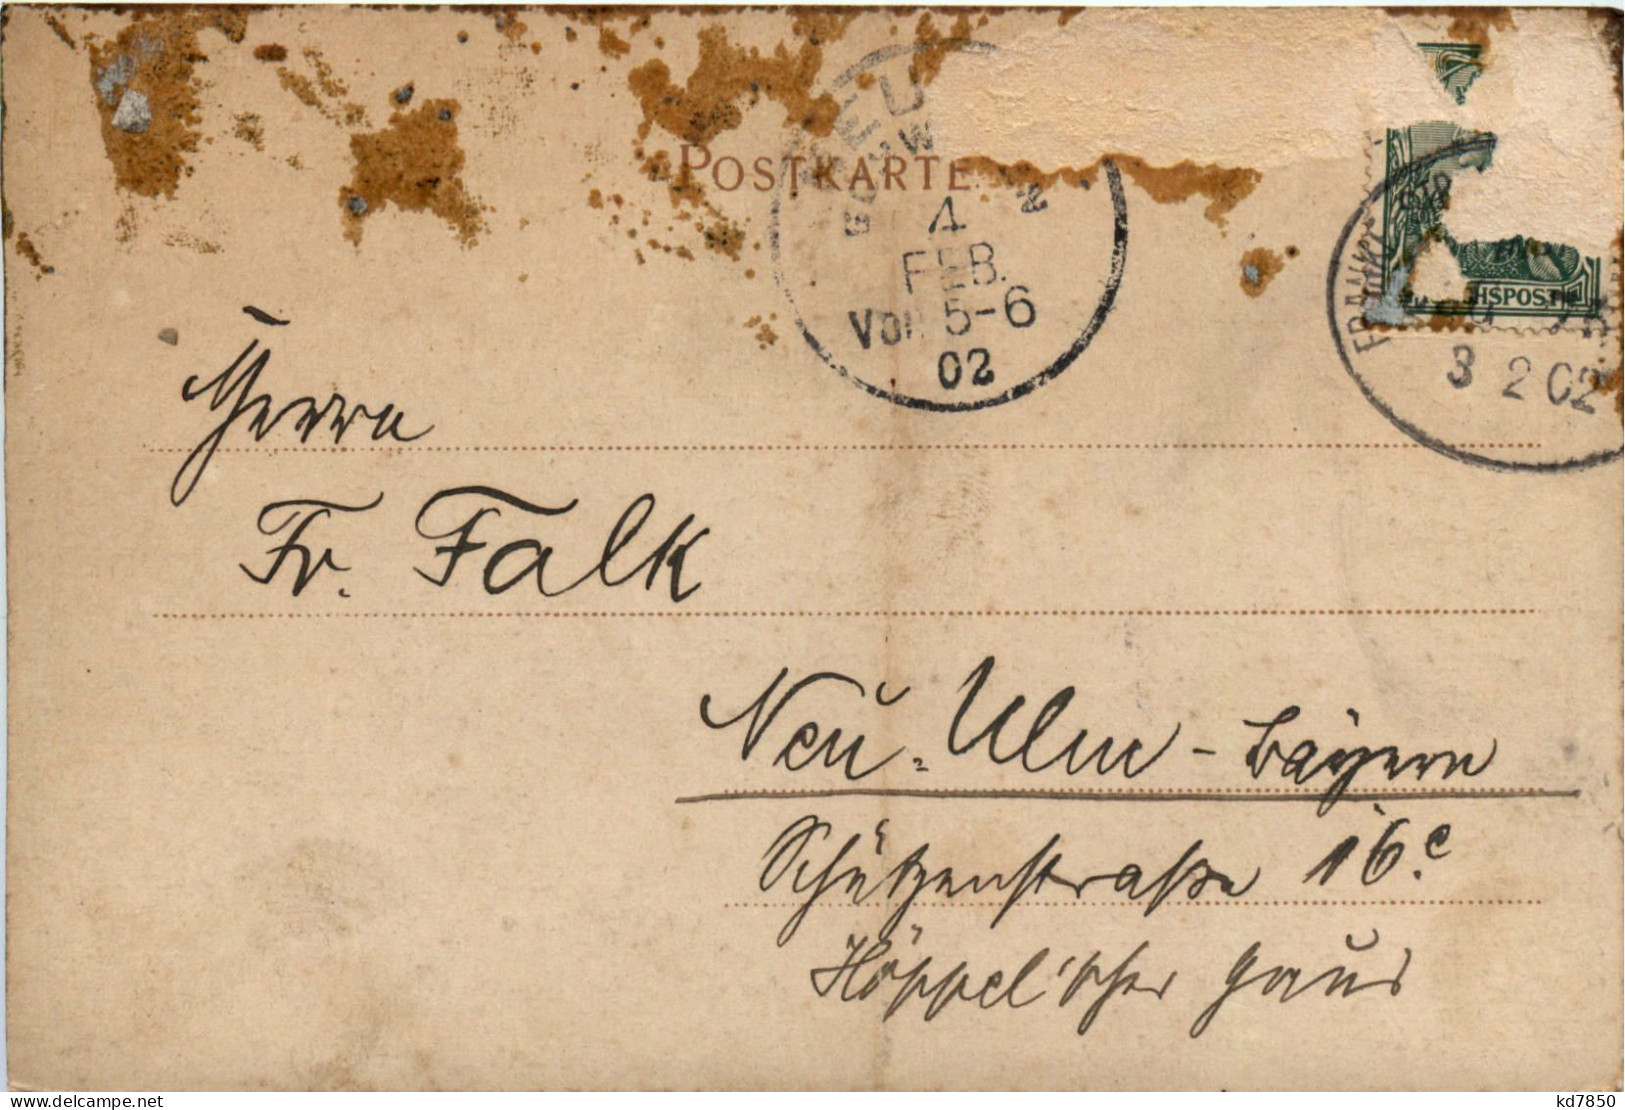 POSTKARTE
4
FEB.
Vor 5-6
02
HSPOST
3 2 02
Herrn
Fr. Falk
Neu-Ulm - Bayern
Schützenstraße 16c.
Höppel'sches Haus
kd7850